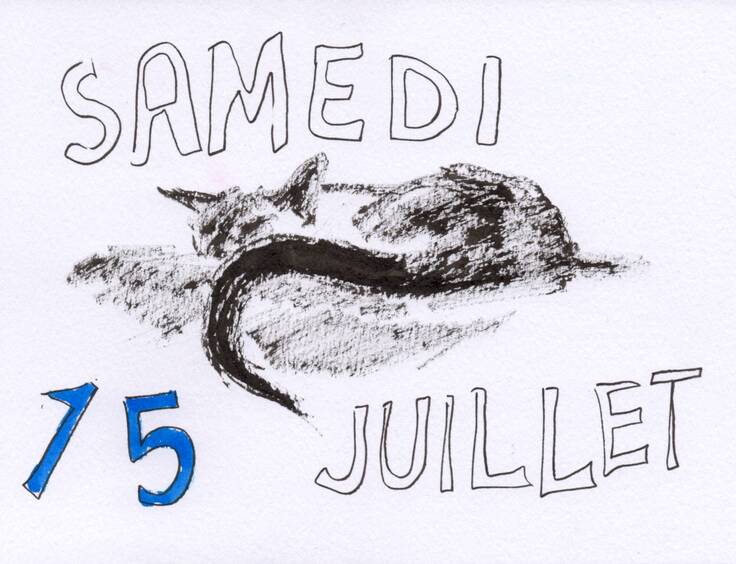 SAMEDI
15 JUILLET